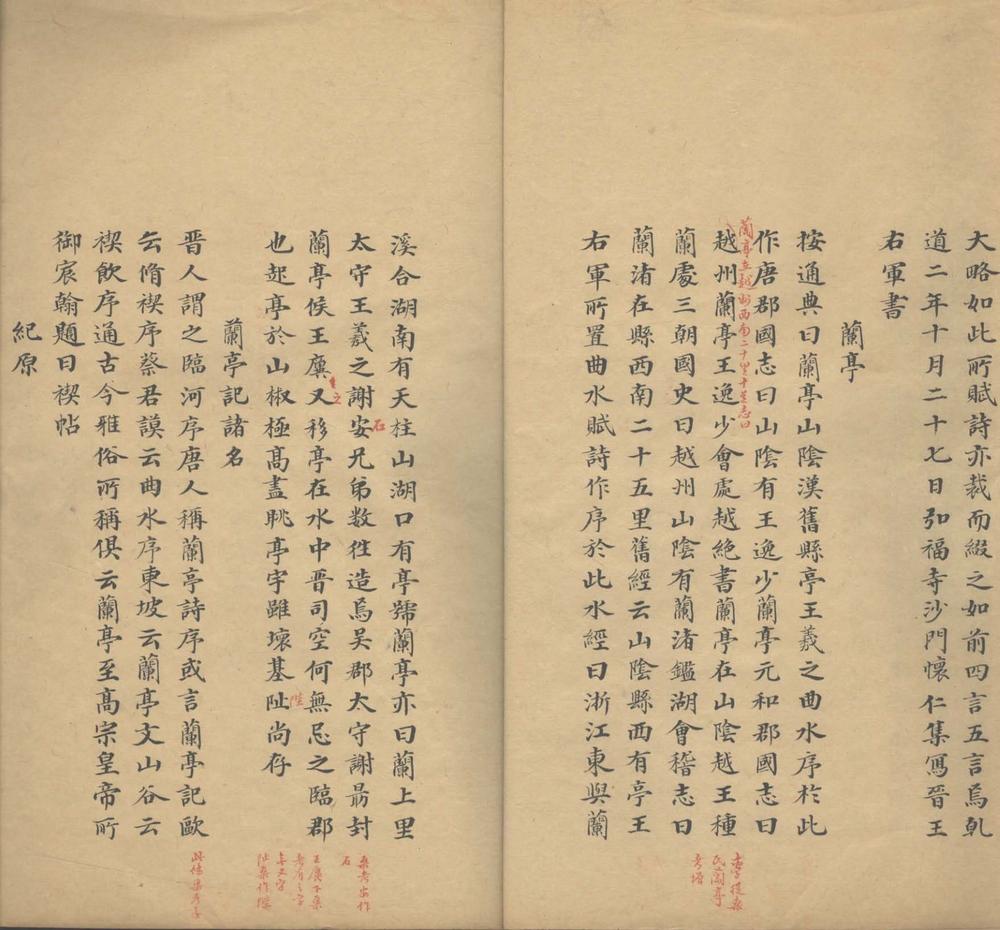 大略如此所賦詩亦裁而綴之如前四言五言焉乹
道二年十月二十七日弘福寺沙門懷仁集寫晉王
右軍書
蘭亭
按通典曰蘭亭山陰漢舊縣亭王羲之曲水序於此
作唐郡國志曰山陰有王逸少蘭亭元和郡國志曰
蘭亭在越州西南二十里十道志曰
越州蘭亭王逸少會處越絶書蘭亭在山陰越王種
蘭處三朝國史曰越州山陰有蘭渚鑑湖會稽志曰
蘭渚在縣西南二十五里舊經云山陰縣西有亭王
右軍所置曲水賦詩作序於此水經曰浙江東與蘭
溪合湖南有天柱山湖口有亭號蘭亭亦曰蘭上里
石
太守王羲之謝安兄弟數往造焉吳郡太守謝勗封
之
蘭亭侯王廙又移亭在水中晉司空何無忌之臨郡
陞
也起亭於山椒極高盡眺亭宇雖壞基阯尚存
蘭亭記諸名
晉人謂之臨河序唐人稱蘭亭詩序或言蘭亭記歐
云脩禊序蔡君謨云曲水序東坡云蘭亭文山谷云
禊飲序通古今雅俗所稱俱云蘭亭至高宗皇帝所
御宸翰題曰禊帖
紀原
桑考安作
石
王廙下桑
考有之字
無又字